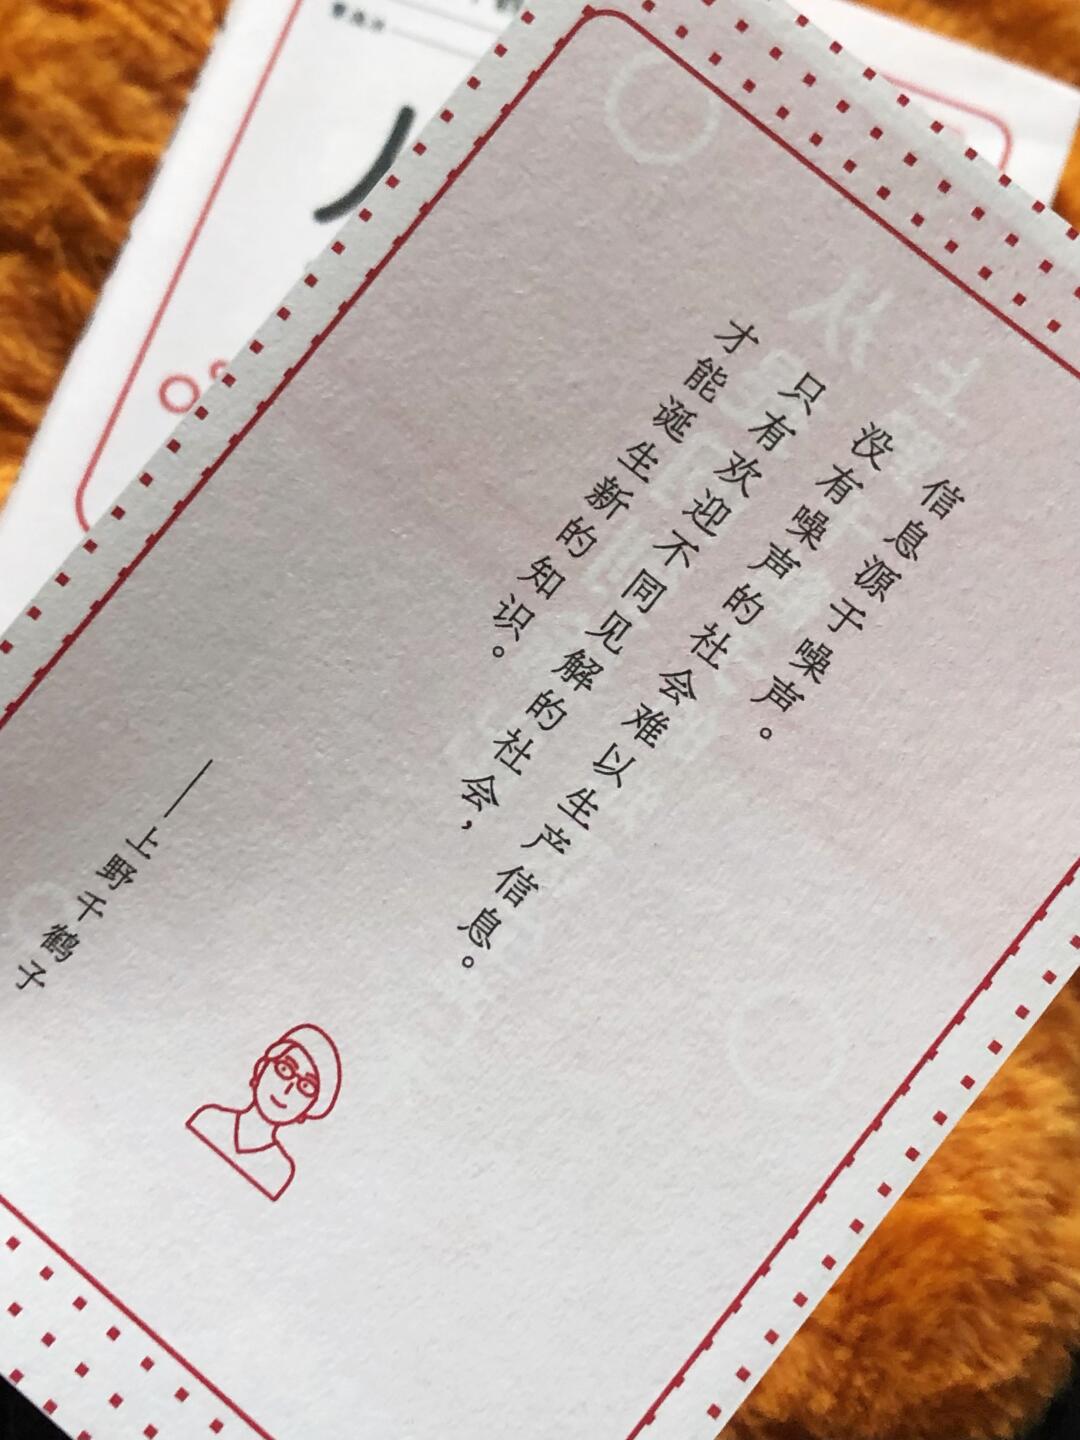 信息源于噪声。
没有噪声的社会难以生产信息。
只有欢迎不同见解的社会，
才能诞生新的知识。
——上野千鹤子